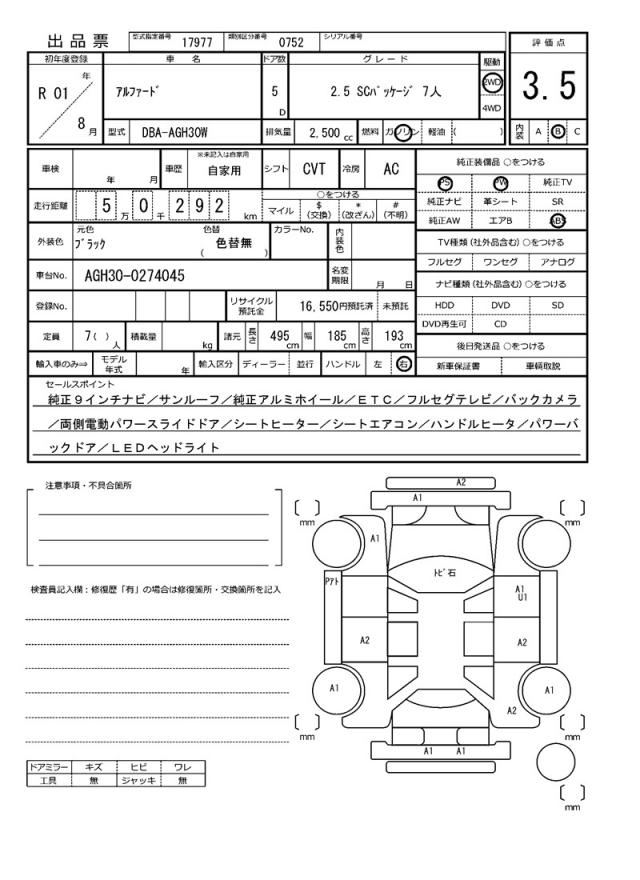 出品票 型式指定番号 17977 類別区分番号 0752 シリアル番号
初年度登録 車名 ドア数 グレード 駆動 評価点
R 01 年 8 月 アルファード 5 D 2.5 SCパッケージ 7人 2WD 4WD 3.5
型式 DBA-AGH30W 排気量 2,500 cc 燃料 ガソリン 軽油 ( ) 内装 A B C
車検 年 月 車歴 ※未記入は自家用 自家用 シフト CVT 冷房 AC 純正装備品 ○をつける
PS PW 純正TV
走行距離 5 万 0 千 2 9 2 km ○をつける 純正ナビ 革シート SR
マイル $(交換) *(改ざん) #(不明) 純正AW エアB ABS
外装色 元色 ブラック 色替 色替無 ( ) カラーNo. 内装色 TV種類(社外品含む)○をつける
フルセグ ワンセグ アナログ
車台No. AGH30-0274045 名変期限 月 日 ナビ種類(社外品含む)○をつける
登録No. リサイクル預託金 16,550円預託済 未預託 HDD DVD SD
DVD再生可 CD
定員 7( ) 人 積載量 kg 諸元 長さ 495 cm 幅 185 cm 高さ 193 cm 後日発送品 ○をつける
輸入車のみ⇒ モデル年式 年 輸入区分 ディーラー 並行 ハンドル 左 右 新車保証書 車輌取説
セールスポイント
純正9インチナビ/サンルーフ/純正アルミホイール/ETC/フルセグテレビ/バックカメラ
/両側電動パワースライドドア/シートヒーター/シートエアコン/ハンドルヒータ/パワーバ
ックドア/LEDヘッドライト
注意事項・不具合箇所
A2
A1
mm mm
A1
トビ石
Pアト A1
U1
検査員記入欄:修復歴「有」の場合は修復箇所・交換箇所を記入
A2 A2
A1 A1
A2
mm mm
A1 A1
ドアミラー キズ ヒビ ワレ
工具 無 ジャッキ 無
mm